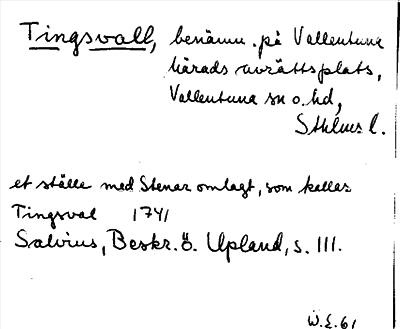 Tingsvall, benämn. på Vallentuna
härads avrättsplats,
Vallentuna sn o. hd,
Sthlms l.
et ställe med Stenar omlagt, som kallas
Tingsval 1741
Salvius, Beskr. ö. Upland, s. 111.
W.E. 61